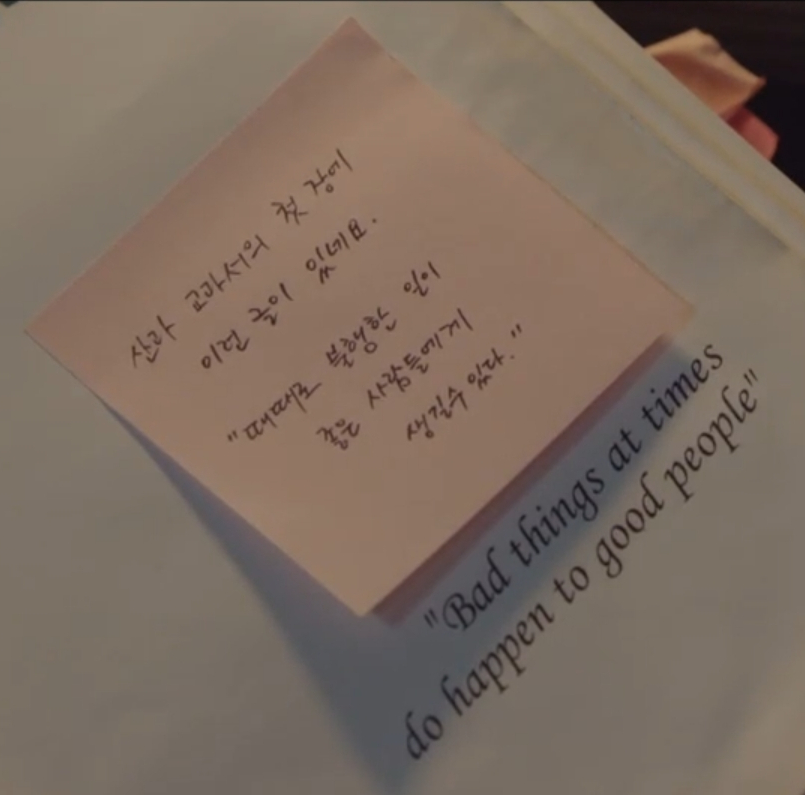 산과 교과서의 첫 장에
이런 글이 있네요.
"때때로 불행한 일이
좋은 사람들에게
생길수 있다."
"Bad things at times
do happen to good people"